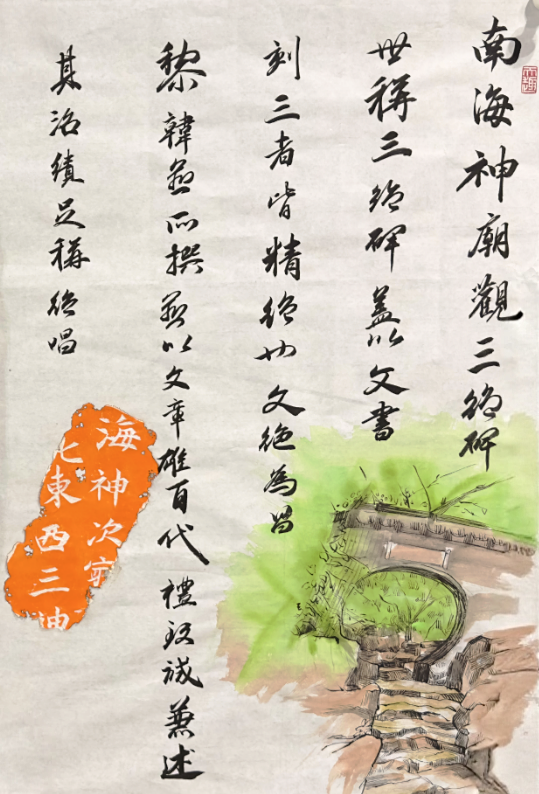 南海神廟觀三絕碑
世稱三絕碑蓋以文書
刻三者皆精絕也文絕為昌
黎韓愈所撰愈以文章雄百代禮致誠兼述
其治績足稱絕唱
海神次㝡
東西三神